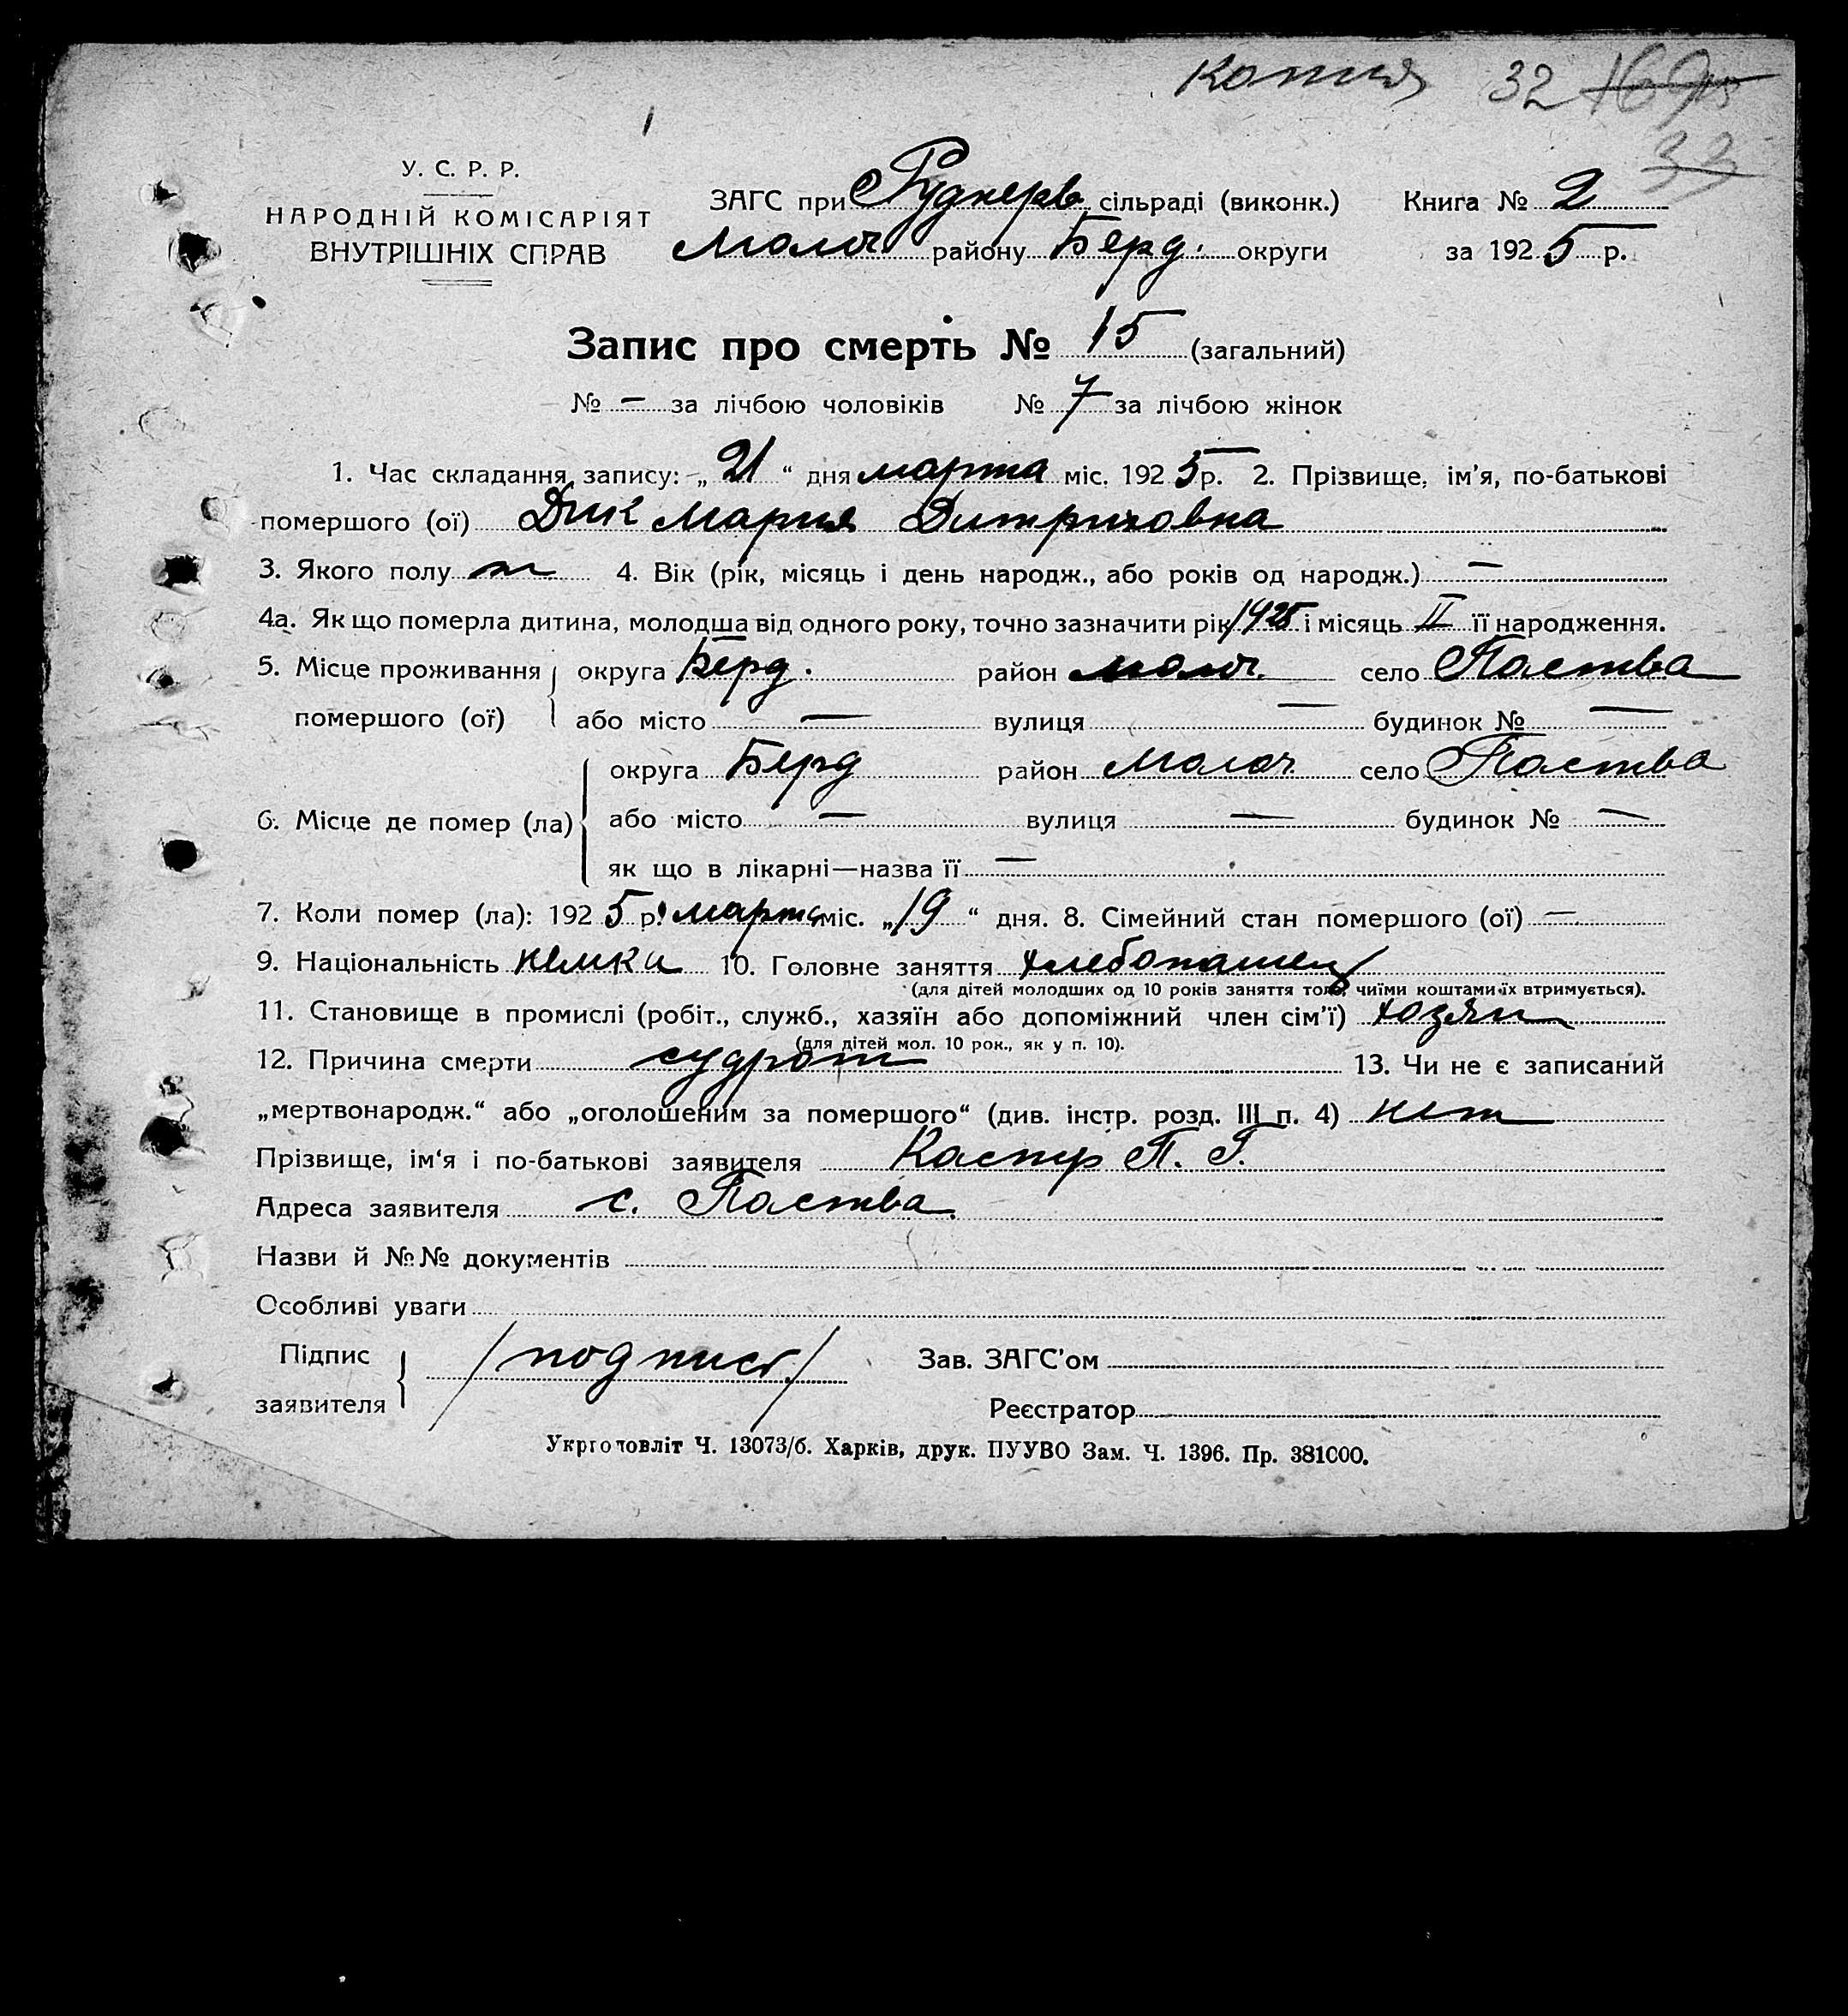 копия 32
33
У. С. Р. Р.
НАРОДНІЙ КОМІСАРІЯТ
ВНУТРІШНІХ СПРАВ
ЗАГС при Руднерв сільраді (виконк.) Книга № 2
Молоч району Берд. округи за 1925 р.
Запис про смерть № 15 (загальний)
№ — за лічбою чоловіків № 7 за лічбою жінок
1. Час складання запису: „21“ дня марта міс. 1925 р. 2. Прізвище, ім'я, по-батькові
помершого (ої) Дик Мария Дитриховна
3. Якого полу ж 4. Вік (рік, місяць і день народж., або років од народж.) —
4а. Як що померла дитина, молодша від одного року, точно зазначити рік 1925 і місяць II її народження.
5. Місце проживання округа Берд. район Молоч. село Паства
помершого (ої) або місто — вулиця — будинок № —
округа Берд район Молоч. село Паства
6. Місце де помер (ла) або місто — вулиця — будинок № —
як що в лікарні—назва її —
7. Коли помер (ла): 1925 р. марта міс. „19“ дня. 8. Сімейний стан помершого (ої) —
9. Національність немка 10. Головне заняття хлебопашец
(для дітей молодших од 10 років заняття того, чиїми коштами їх втримується).
11. Становище в промислі (робіт., служб., хазяїн або допоміжний член сім'ї) хозяин
(для дітей мол. 10 рок., як у п. 10).
12. Причина смерти судрот 13. Чи не є записаний
„мертвонародж.“ або „оголошеним за помершого“ (див. інстр. розд. III п. 4) нет
Прізвище, ім'я і по-батькові заявителя Каспер П. Г.
Адреса заявителя с. Паства
Назви й №№ документів
Особливі уваги
Підпис /подпись/ Зав. ЗАГС'ом
заявителя Реєстратор
Укрголовліт Ч. 13073/б. Харків, друк. ПУУВО Зам. Ч. 1396. Пр. 381000.